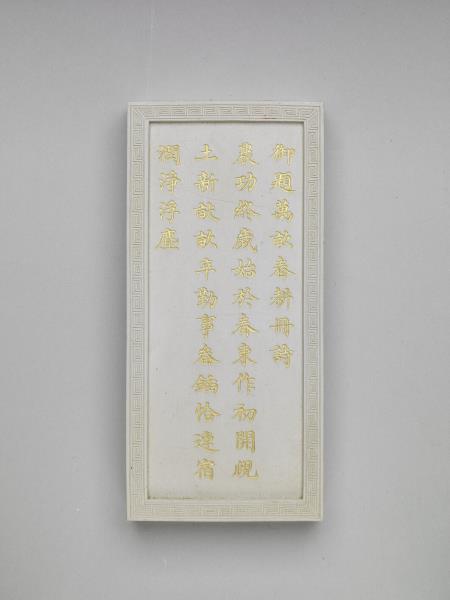 御題萬畝春耕冊詩
農功終歲始於春東作初開覛
土新畝畝辛勤事畚鍤恰逢宿
潤淨浮塵